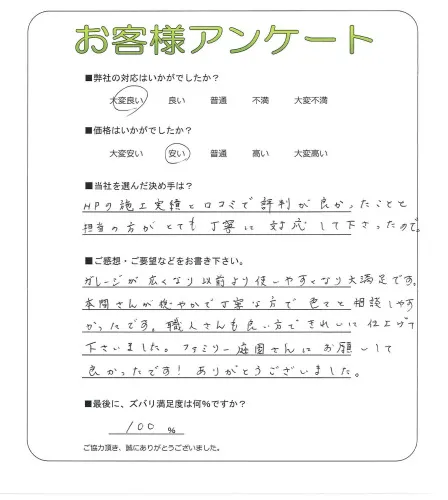 お客様アンケート
■弊社の対応はいかがでしたか？
大変良い 良い 普通 不満 大変不満
■価格はいかがでしたか？
大変安い 安い 普通 高い 大変高い
■当社を選んだ決め手は？
HPの施工実績と口コミで評判が良かったことと
担当の方がとても丁寧に対応して下さったので。
■ご感想・ご要望などをお書き下さい。
ガレージが広くなり以前より使いやすくなり大満足です。
本間さんが穏やかで丁寧な方で色々と相談しやす
かったです。職人さんも良い方できれいに仕上げて
下さいました。ファミリー庭園さんにお願いして
良かったです！ありがとうございました。
■最後に、ズバリ満足度は何%ですか？
100 %
ご協力頂き、誠にありがとうございました。